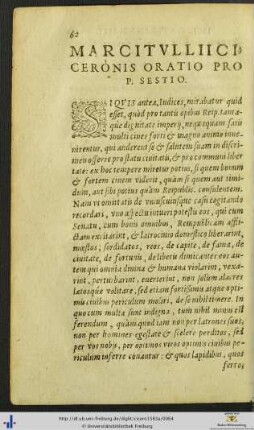 62
MARCI TVLLII CI=
CERONIS ORATIO PRO
P. SESTIO.
SI QVIS antea, Iudices, mirabatur quid
esset, quòd pro tantis opibus Reip. tan ta=
que dignitate imperij, nequaquam satis
multi ciues forti & magno animo inue=
nirentur, qui auderent se & salutem suam in discri=
men offerre pro statu ciuitatis, & pro communi liber
tate: ex hoc tempore miretur potius, si quem bonum
& fortem ciuem viderit, quàm si quem aut timi=
dum, aut sibi potius quàm Reipublic. consulentem.
Nam vt omittatis de vniuscuiusque casu cogitando
recordari, vno aspectu intueri potestis eos, qui cum
Senatu, cum bonis omnibus, Rempublicam affli=
ctam excitarint, & latrocinio domestico liberarint,
mœstos, sordidatos, reos, de capite, de fama, de
ciuitate, de fortunis, de liberis dimicantes: eos au=
tem qui omnia diuina & humana violarint, vexa=
rint, perturbarint, euerterint, non solum alacres
lætosque volitare, sed etiam fortissimis atque opti=
mis ciuibus periculum moliri, de se nihil timere. In
quo cum multa sunt indigna, tum nihil minus est
ferendum, quàm quod iam non per latrones suos,
non per homines egestate & scelere perditos, sed
per vos nobis, per optimos viros optimis ciuibus pe=
riculum inferre conantur: & quos lapidibus, quos
ferro,
http://dl.ub.uni-freiburg.de/diglit/
© Universitätsbibliothek Freiburg